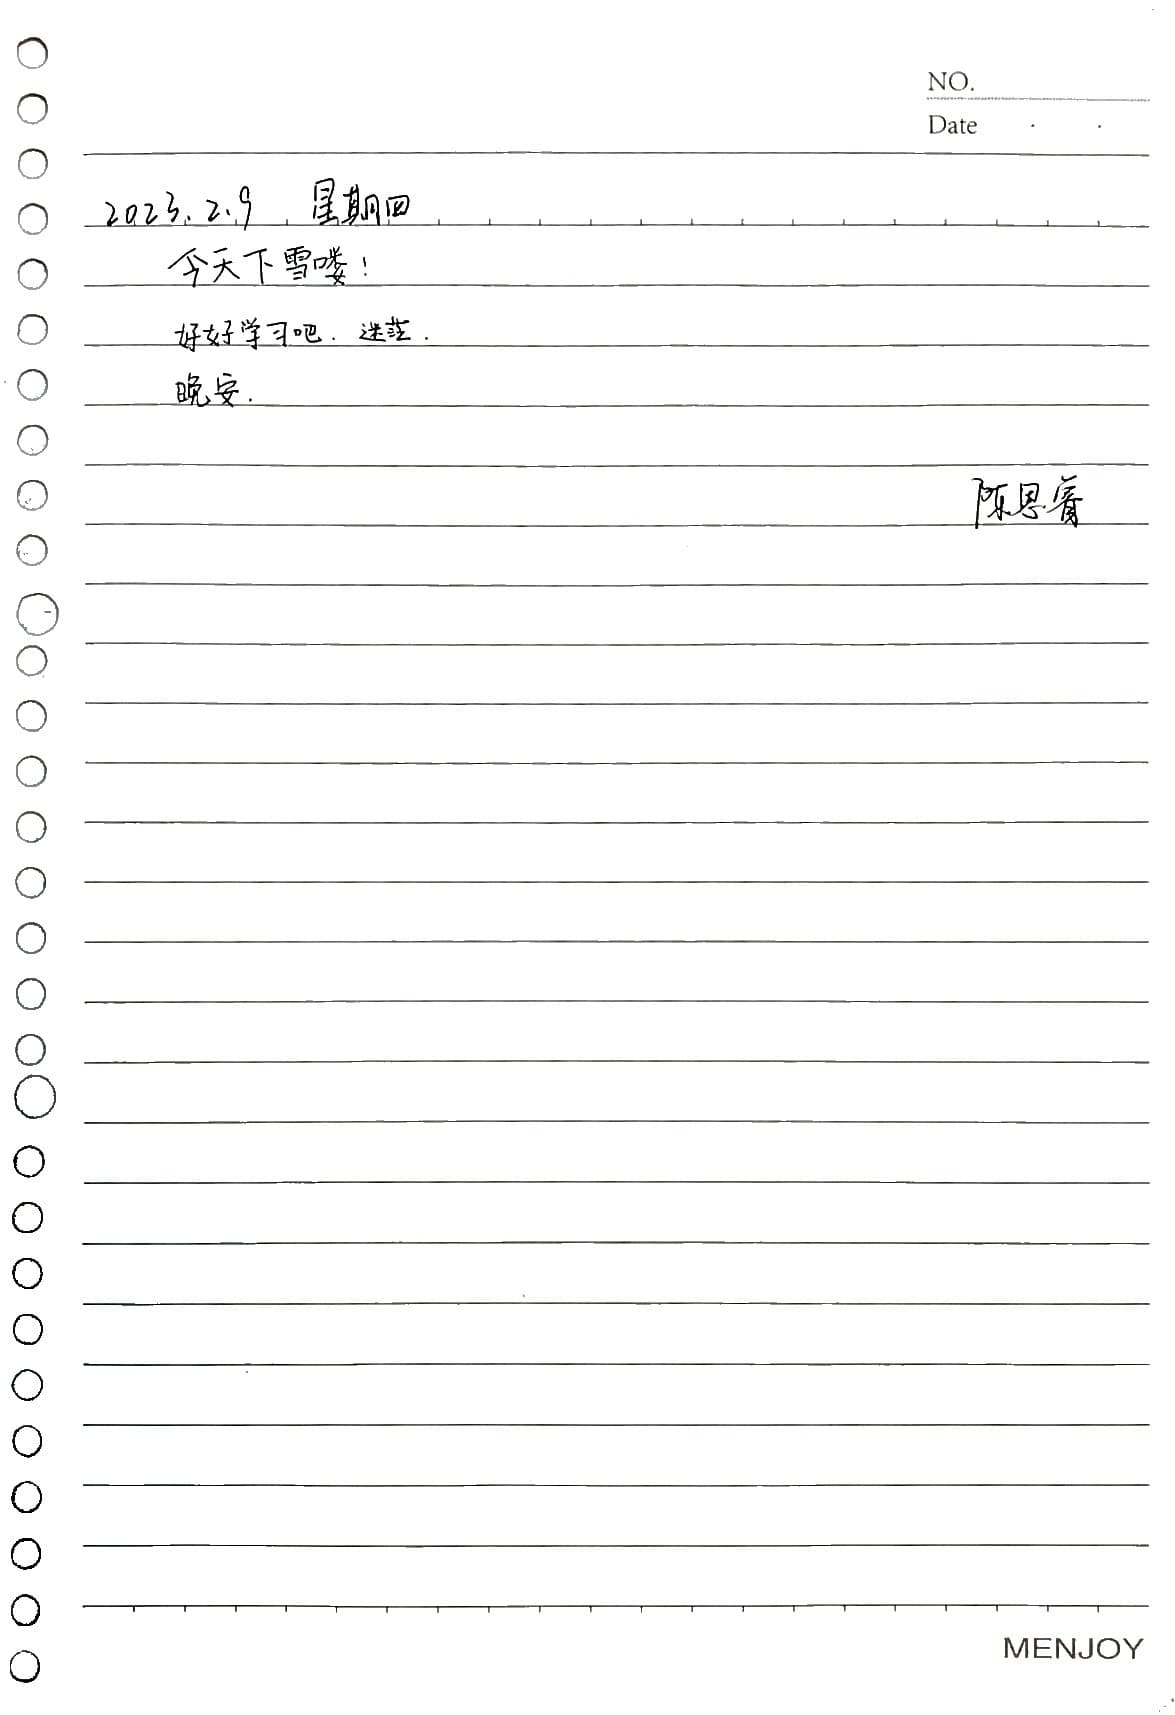 NO.
Date · ·
2023.2.9 星期四
今天下雪喽!
好好学习吧. 迷茫.
晚安.
陈思睿
MENJOY